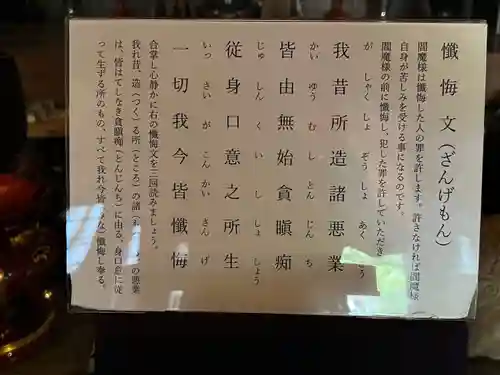 懺悔文（ざんげもん）
閻魔様は懺悔した人の罪を許します。許さなければ閻魔様
自身が苦しみを受ける事になるのです。
閻魔様の前に懺悔し、犯した罪を許していただき
が しゃく しょ ぞう しょ あく
我昔所造諸悪業
かい ゆう む し とん じん ち
皆由無始貪瞋痴
じゅ しん く い し しょ しょう
従身口意之所生
いっ さい が こん かい さん げ
一切我今皆懺悔
合掌し心静かに右の懺悔文を三回読みましょう。
我れ昔、造（つく）る所（ところ）の諸 の悪業
は、皆はてしなき貪瞋痴（とんじんち）に由る、身口意に従
って生ずる所のもの、すべて我れ今皆 懺悔し奉る。